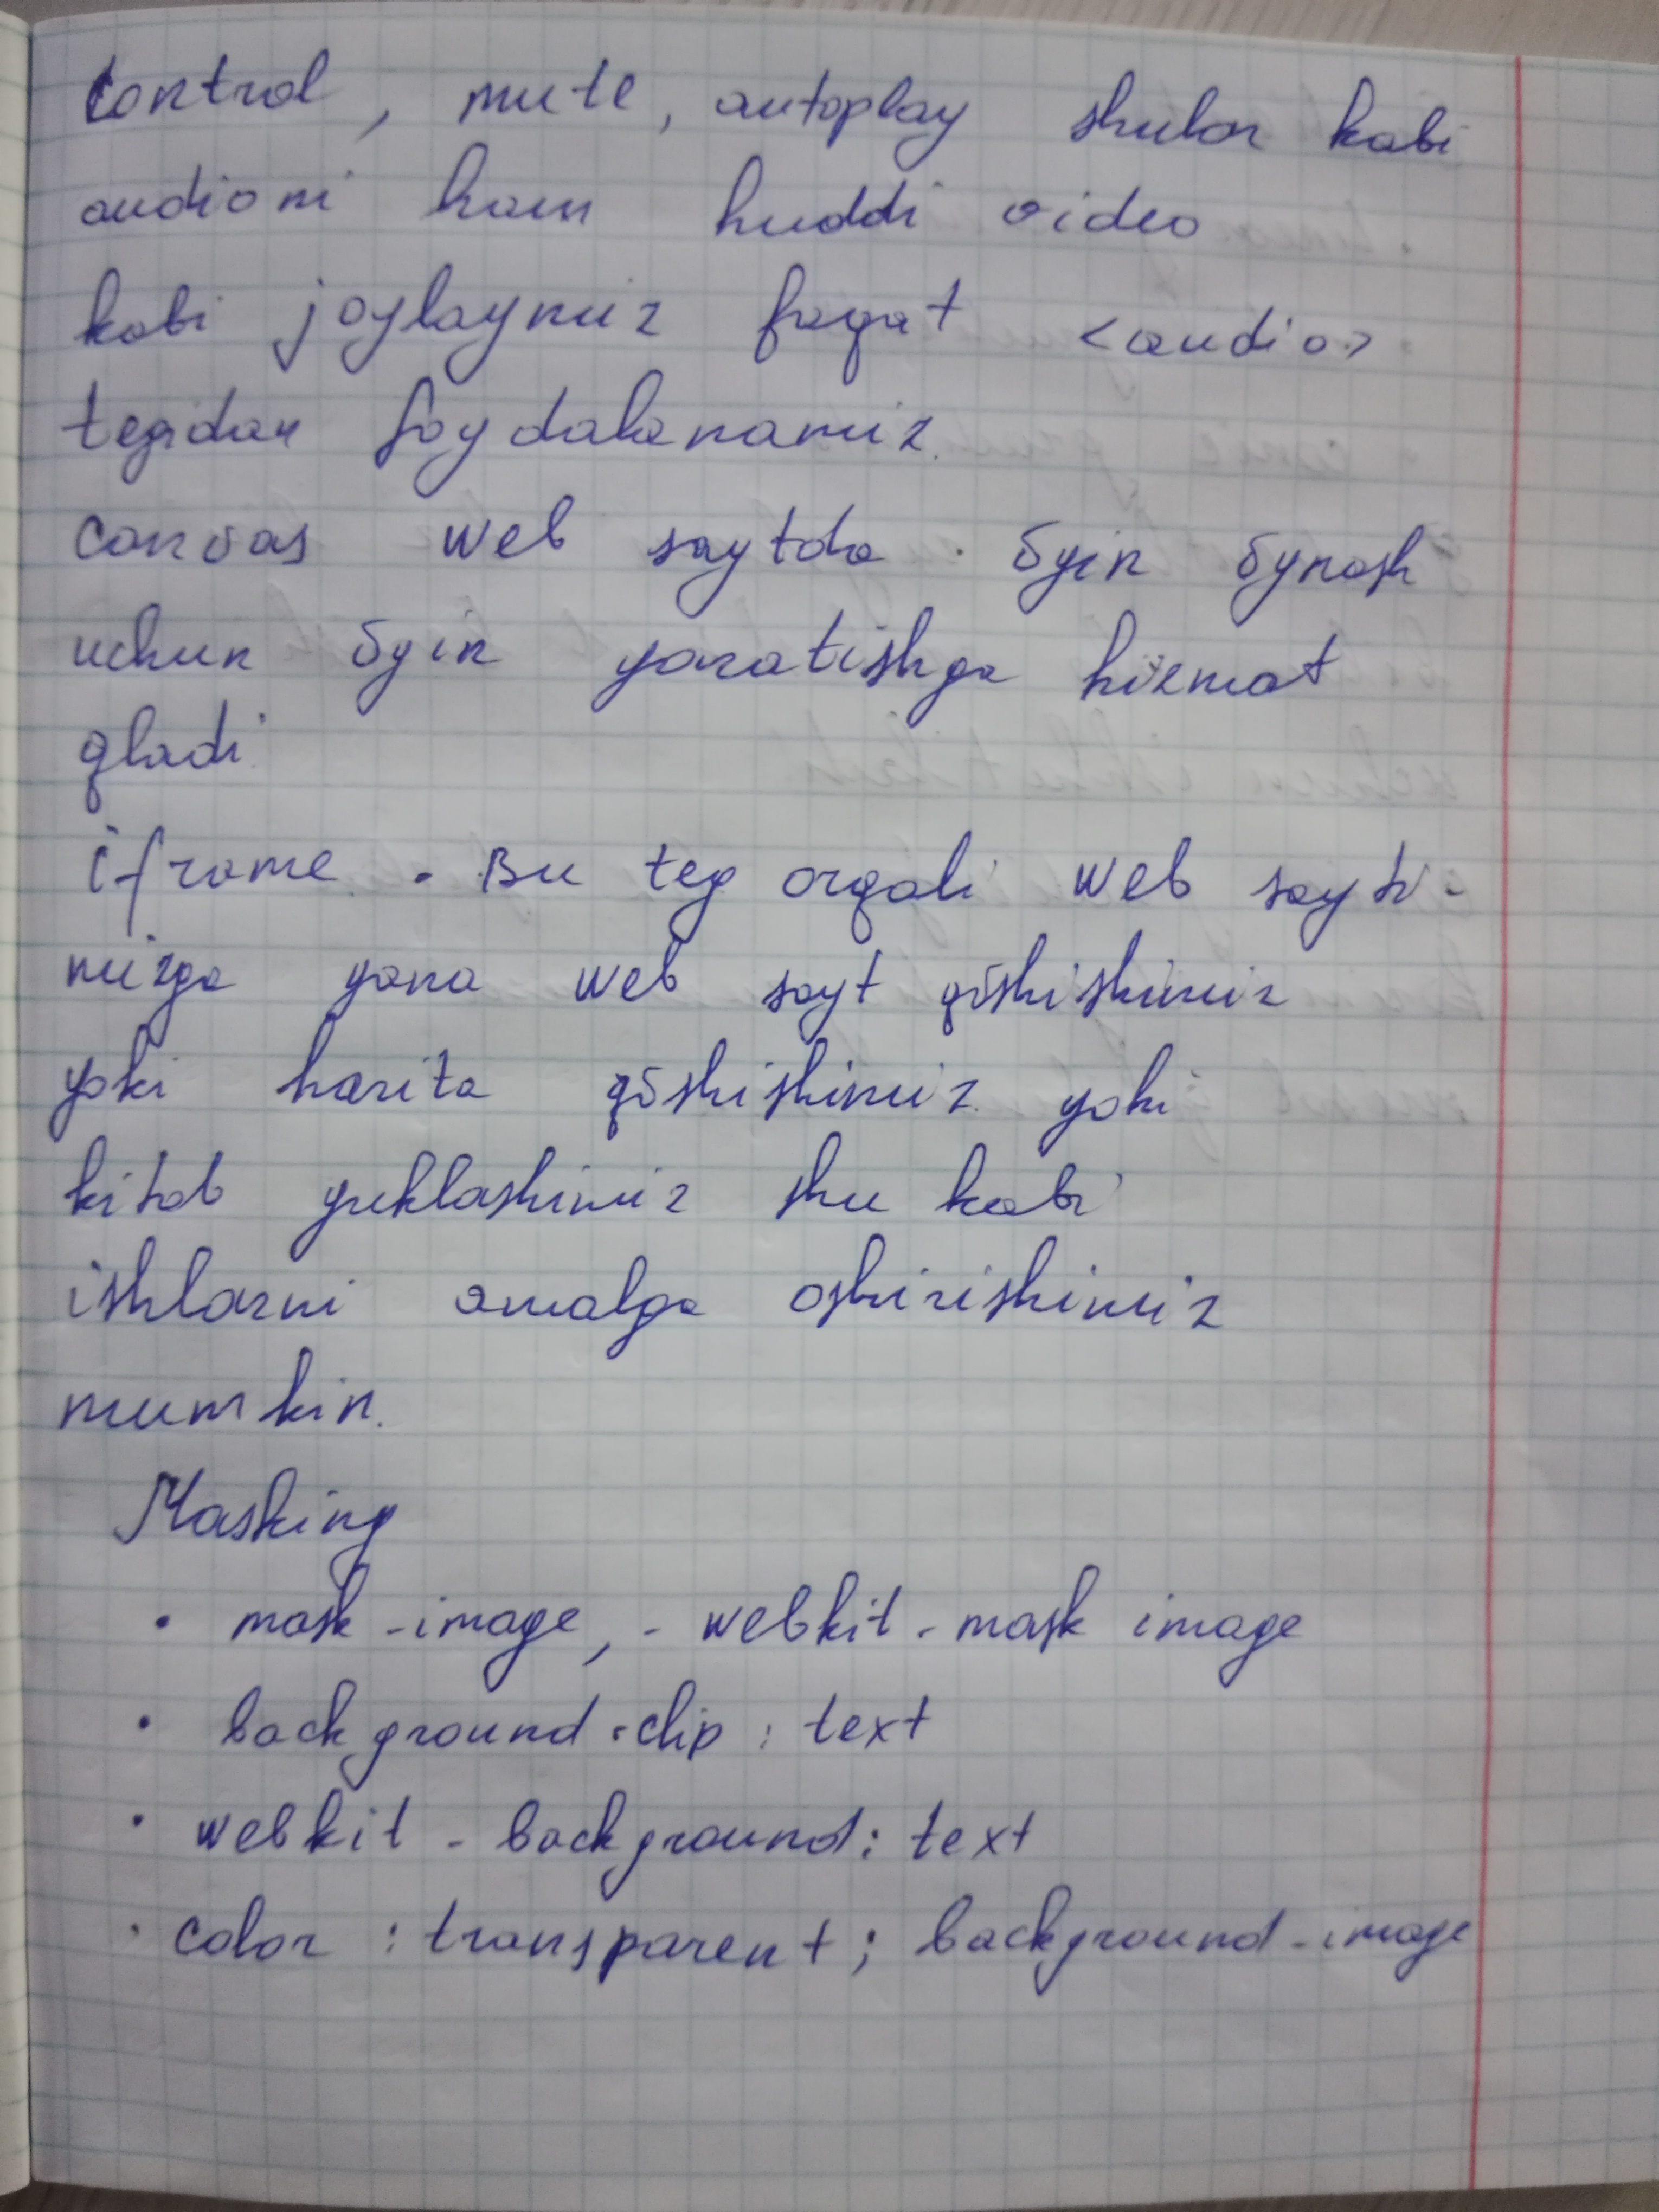 control, mute, autoplay shular kabi
audioni ham huddi video
kabi joylaymiz faqat <audio>
tegidan foydalanamiz.
canvas web saytda ōyin ōynash
uchun ōyin yaratishga hizmat
qladi.
iframe - Bu teg orqali web sayti-
mizga yana web sayt qōshishimiz
yoki harita qōshishimiz yoki
kitob yuklashimiz shu kabi
ishlarni amalga oshirishimiz
mumkin.
Masking
• mask-image, -webkit-mask image
• background-clip : text
• webkit-background: text
• color : transparent; background-image